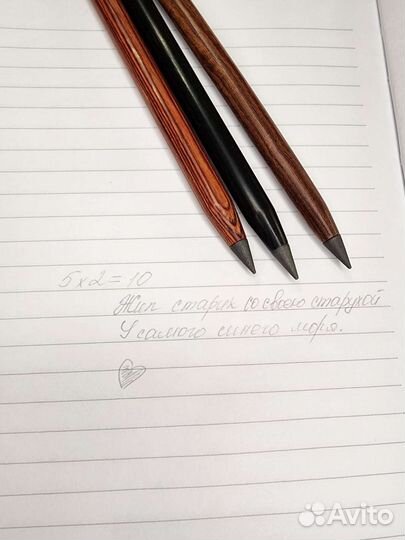 5x2=10
Жил старик со своею старухой
У самого синего моря.
Avito